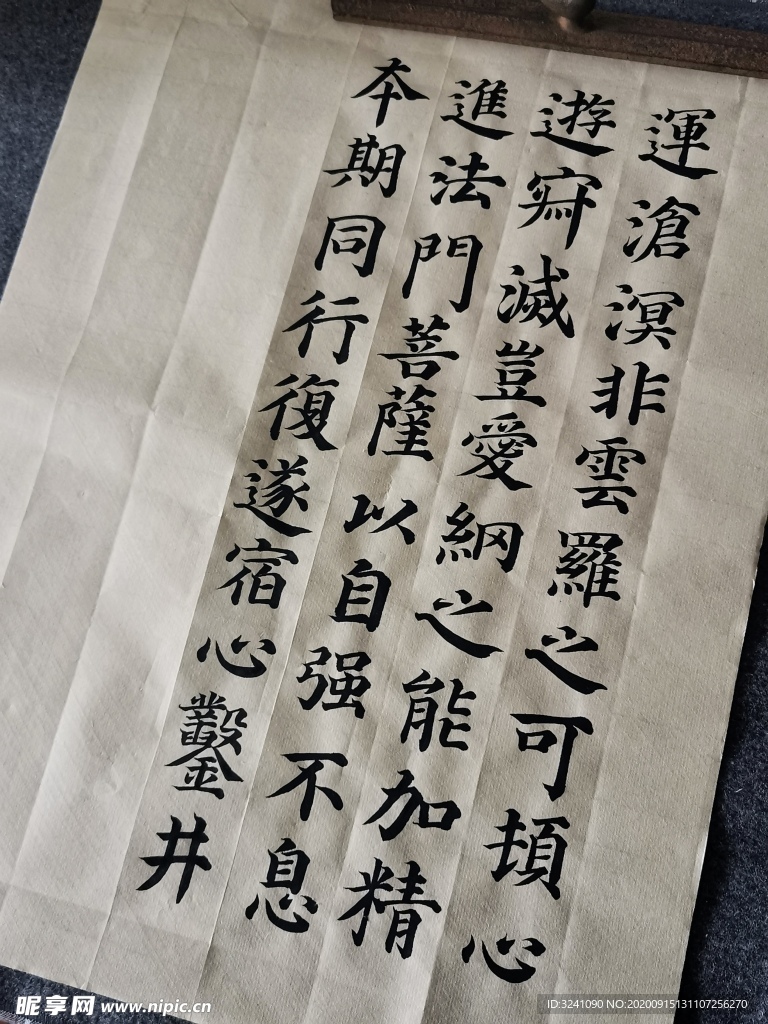 運滄溟非雲羅之可頓心
遊寂滅豈愛網之能加精
進法門菩薩以自强不息
本期同行復遂宿心鑿井
昵享网 www.nipic.cn
ID:3241090 NO:20200915131107256270